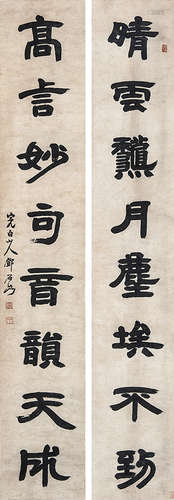 晴雲黧月塵埃不到
高言妙句音韻天成
完白山人鄧石如